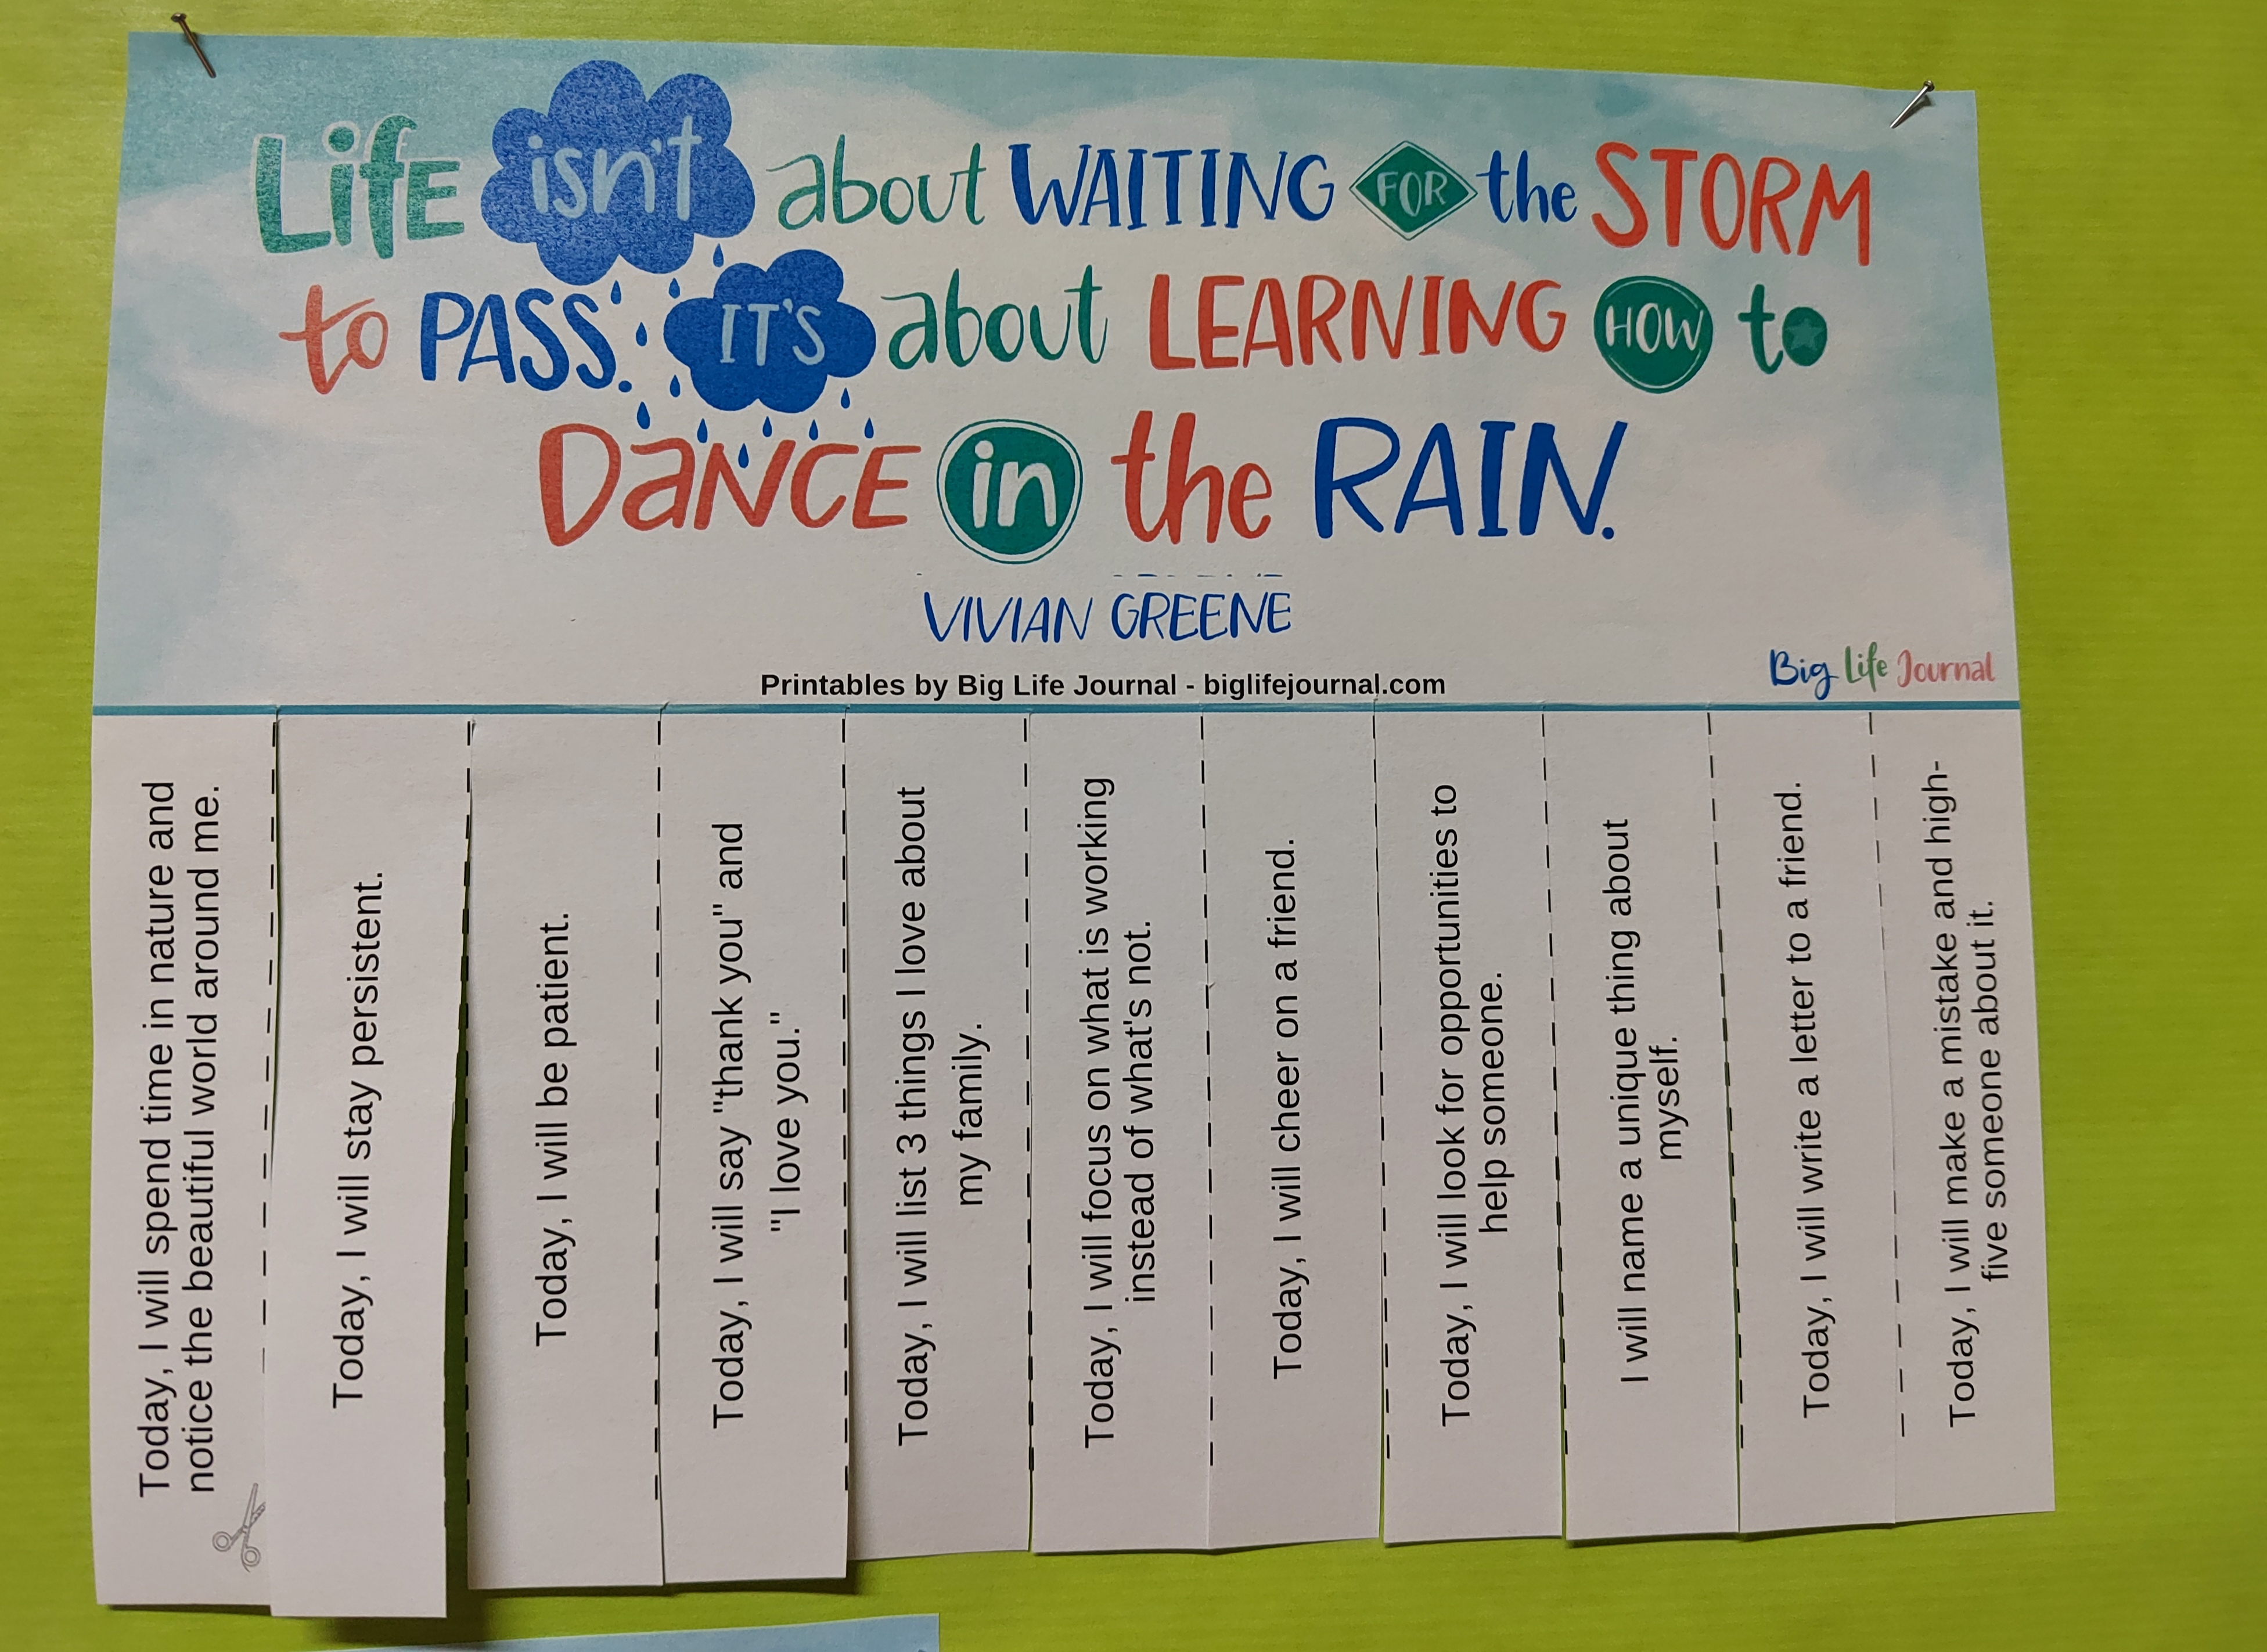 Life isn't about WAITING FOR the STORM
to PASS. IT'S about LEARNING HOW to
DANCE in the RAIN.
VIVIAN GREENE
Printables by Big Life Journal - biglifejournal.com
Big Life Journal
Today, I will spend time in nature and
notice the beautiful world around me.
Today, I will stay persistent.
Today, I will be patient.
Today, I will say "thank you" and
"I love you."
Today, I will list 3 things I love about
my family.
Today, I will focus on what is working
instead of what's not.
Today, I will cheer on a friend.
Today, I will look for opportunities to
help someone.
I will name a unique thing about
myself.
Today, I will write a letter to a friend.
Today, I will make a mistake and high-
five someone about it.